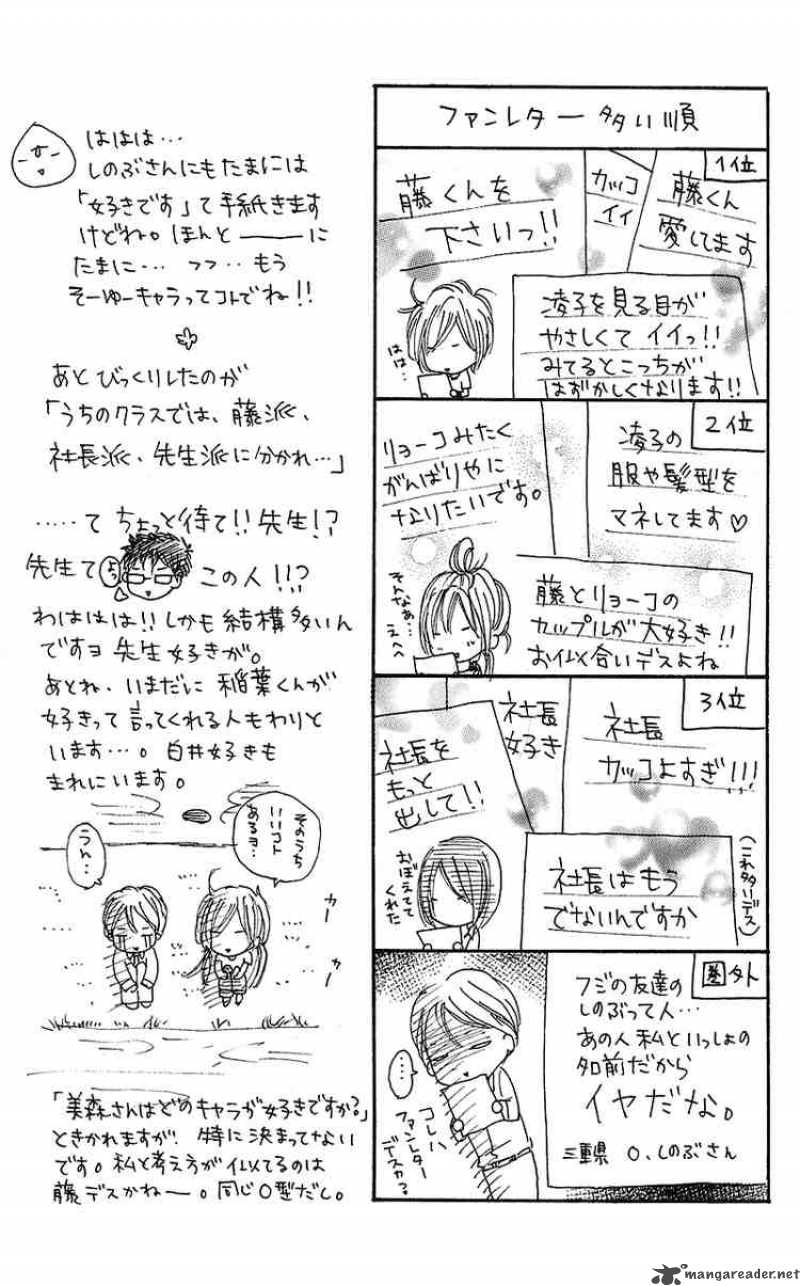 ファンレター多い順
1位
藤くん
愛してます
カッコ
イイ
藤くんを
下さいっ!!
凌子を見る目が
やさしくてイイっ!!
みてるとこっちが
はずかしくなります!!
はは…
2位
凌子の
服や髪型を
マネしてます♡
リョーコみたく
がんばりやに
なりたいです。
藤とリョーコの
カップルが大好き!!
お似合いデスよね
そんなぁ…
えへへ
3位
社長
カッコよすぎ!!!
社長
好き
社長を
もっと
出して!!
社長はもう
でないんですか
(これ多いデス)
おぼえてて
くれた
圏外
フジの友達の
しのぶって人…
あの人私といっしょの
名前だから
イヤだな。
三重県 O、しのぶさん
…
コレハ
ファンレター
デスカ?
ははは…
しのぶさんにもたまには
「好きです」て手紙きます
けどね。ほんと―――に
たまに…フフ‥もう
そーゆーキャラってコトでね!!
あとびっくりしたのが
「うちのクラスでは、藤派、
社長派、先生派に分かれ…」
……てちょっと待て!!先生!?
先生て
よっ
この人!!?
わははは!!しかも結構多いん
ですヨ先生好きが。
あとね、いまだに稲葉くんが
好きって言ってくれる人もわりと
います…。白井好きも
まれにいます。
そのうち
いいコト
あるヨ…
うん…
カー
カー
「美森さんはどのキャラが好きですか?」
ときかれますが、特に決まってない
です。私と考え方が似てるのは
藤デスかねー。同じO型だし。
mangareader.net